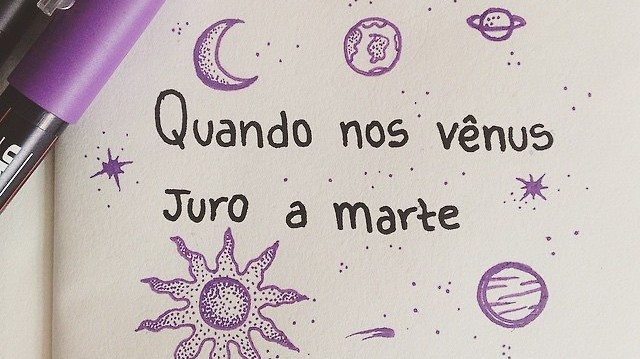 Quando nos vênus
Juro a marte